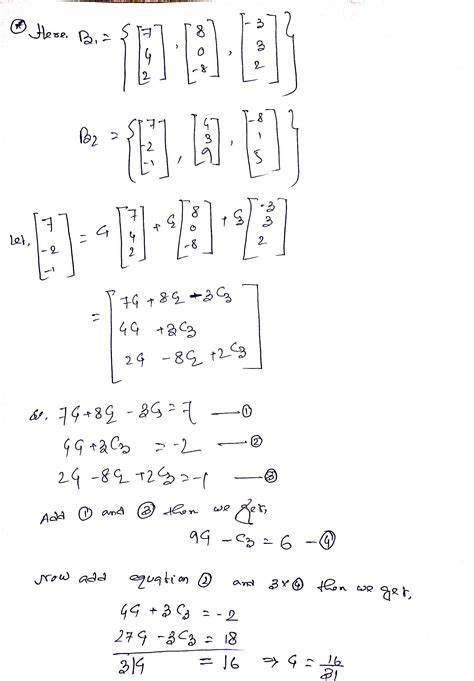 * Here. B₁ = { [7 4 2], [8 0 -8], [-3 3 2] }
B₂ = { [7 -2 -1], [4 3 9], [-8 1 5] }
Let, [7 -2 -1] = C₁ [7 4 2] + C₂ [8 0 -8] + C₃ [-3 3 2]
= [7C₁ + 8C₂ - 3C₃
4C₁ + 3C₃
2C₁ - 8C₂ + 2C₃]
So. 7C₁ + 8C₂ - 3C₃ = 7 — ①
4C₁ + 3C₃ = -2 — ②
2C₁ - 8C₂ + 2C₃ = -1 — ③
Add ① and ③ then we get,
9C₁ - C₃ = 6 — ④
Now add equation ② and 3×④ then we get,
4C₁ + 3C₃ = -2
27C₁ - 3C₃ = 18
31C₁ = 16 ⇒ C₁ = 16/31